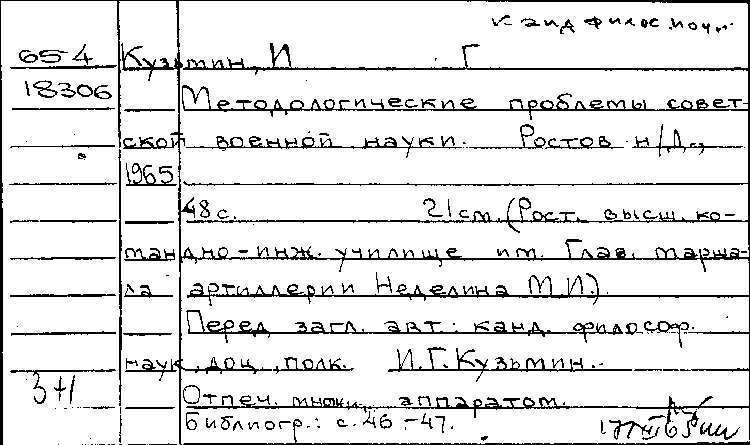 канд филос. наук
65-4 Кузьмин, И Г
18306
Методологические проблемы совет-
ской военной науки. Ростов н/Д.,
1965
48 с. 21 см. (Рост. высш. ко-
мандно-инж. училище им. Глав. марша-
ла артиллерии Неделина М.И.)
Перед загл. авт.: канд. философ.
наук, доц., полк. И.Г. Кузьмин.-
3+1
Отпеч. множ. аппаратом.
Библиогр.: с. 46-47.